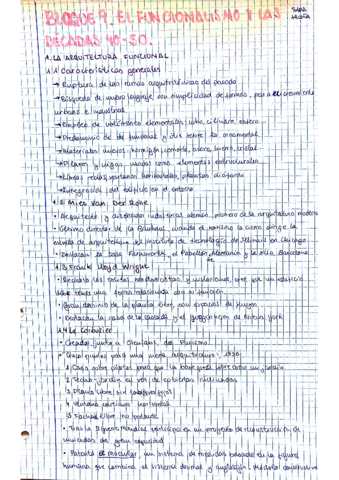 BLOQUE 9. EL FUNCIONALISMO Y LAS
DÉCADAS 40-50.
SARA
1. LA ARQUITECTURA FUNCIONAL
1.1 Características generales
→ Ruptura de las formas arquitectónicas del pasado
→ Búsqueda de nuevo lenguaje con simplicidad de formas, para el crecimiento
urbano e industrial
→ Empleo de volúmenes elementales: cubo, cilindro, esfera
→ Predominio de lo funcional y útil sobre lo ornamental
→ Materiales nuevos: hormigón, cemento, acero, hierro, cristal
→ Pilares y vigas usados como elementos estructurales
→ Líneas rectas, ventanas horizontales, plantas diáfanas
→ Integración del edificio en el entorno
1.2 Mies Van Der Rohe
• Arquitecto y diseñador industrial alemán, pionero de la arquitectura moderna
• Último director de la Bauhaus, cuando el nazismo la cierra dirige la
escuela de arquitectura del Instituto de tecnología de Illinois en Chicago
• Destacan la casa Farnsworth, el Pabellón Alemania y la silla Barcelona
1.3 Frank Lloyd Wright
una forma relacionada con su función
• Gran dominio de la planta libre, con espacios de
• Destacan la casa de la cascada y el Guggenheim de Nueva York
1.4 Le Corbusier
• Creador, junto a Ozenfant, del Purismo
• Cinco puntos para una nueva arquitectura, 1926:
1. Casa sobre pilotes para que la base quede libre como un jardín
2. Techo-jardín en vez de cubiertas inclinadas
3. Planta libre sin
4. Ventana continua horizontal
5. Fachada libre no portante
• Tras la Segunda Mundial participa en un proyecto de reconstrucción de
viviendas de gran capacidad
• Patentó el modulor, un sistema de medidas basado en la figura
humana que combina el sistema decimal y anglosajón.